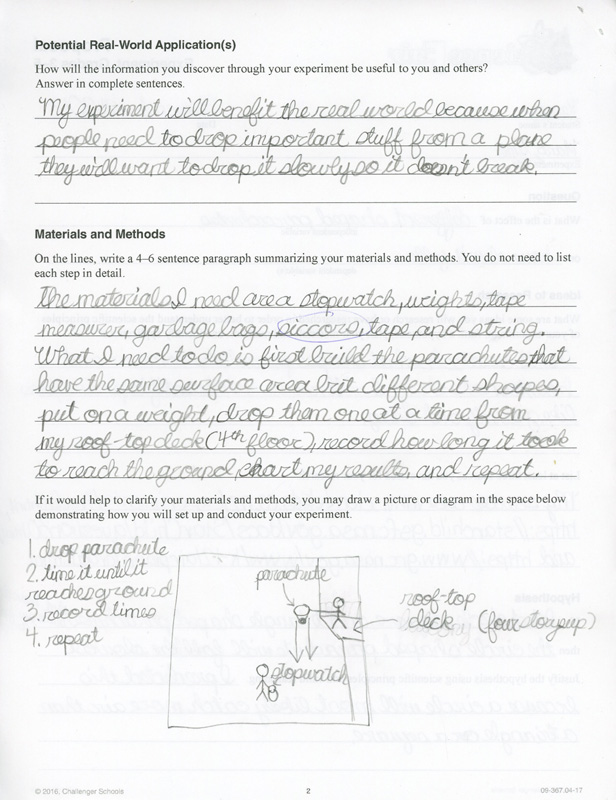 Potential Real-World Application(s)
How will the information you discover through your experiment be useful to you and others?
Answer in complete sentences.
My experiment will benefit the real world because when
people need to drop important stuff from a plane
they will want to drop it slowly so it doesn't break.
Materials and Methods
On the lines, write a 4–6 sentence paragraph summarizing your materials and methods. You do not need to list
each step in detail.
The materials I need are a stopwatch, weights, tape
measurer, garbage bags, siccors, tape, and string.
What I need to do is first build the parachutes that
have the same surface area but different shapes,
put on a weight, drop them one at a time from
my roof-top deck (4th floor), record how long it took
to reach the ground, chart my results, and repeat.
If it would help to clarify your materials and methods, you may draw a picture or diagram in the space below
demonstrating how you will set up and conduct your experiment.
1. drop parachute
2. time it until it
reaches ground
3. record times
4. repeat
parachute
roof-top
deck (four story up)
stopwatch
© 2016, Challenger Schools
2
09-367.04-17